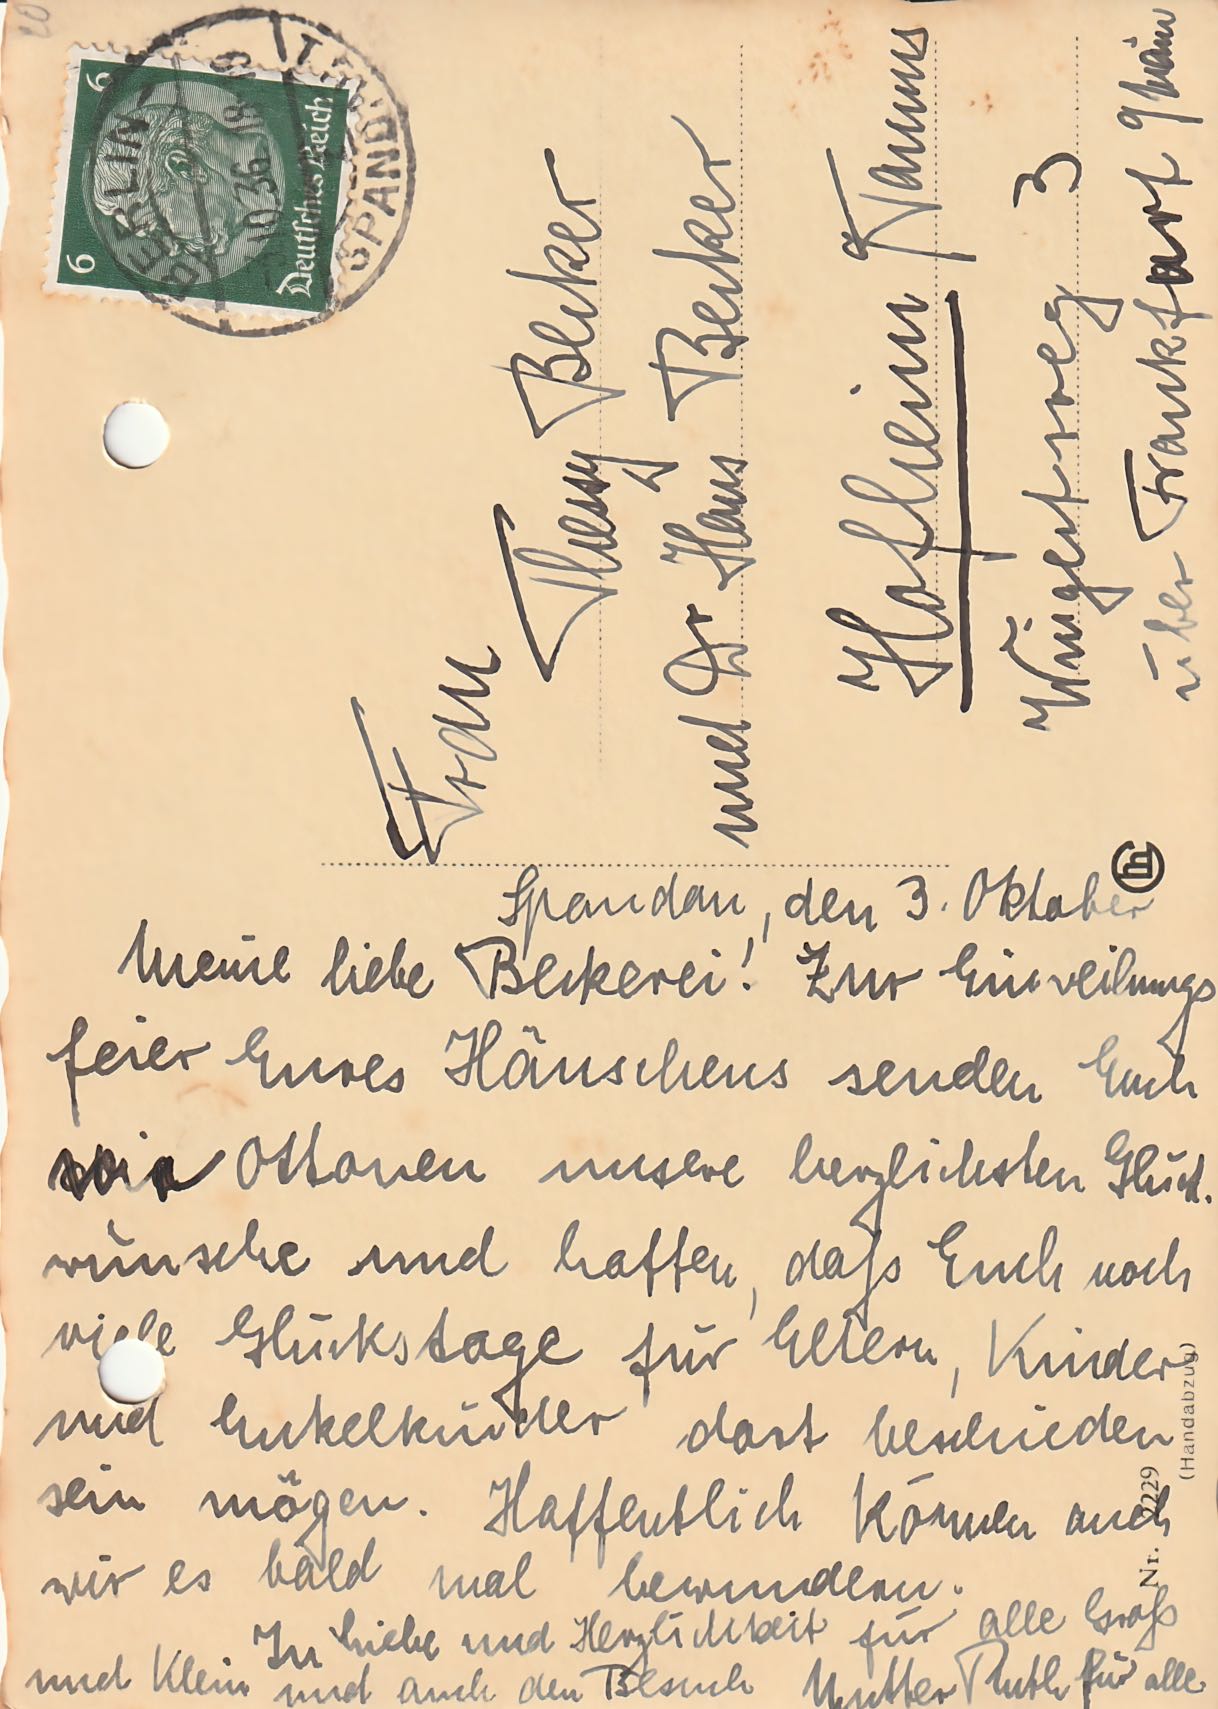 6
6
Deutsches Reich
BERLIN-
SPANDAU
10.36
Frau
Thesy Becker
und Dr Hans Becker
Hofheim Taunus
Wingertsweg 3
über Frankfart Main
Spandau, den 3. Oktober
Meine liebe Beckerei! Zur Einweihungs
feier Eures Häuschens senden Euch
wir Ottonen unsere herzlichsten Glück.
wünsche und hoffen, daß Euch noch
viele Glückstage für Eltern, Kinder
und Enkelkinder dort beschieden
sein mögen. Hoffentlich können auch
wir es bald mal bewundern.
In Liebe und Herzlichkeit für alle Groß
und Klein und auch den Besuch Mutter Ruth für alle
Nr. 2229
(Handabzug)